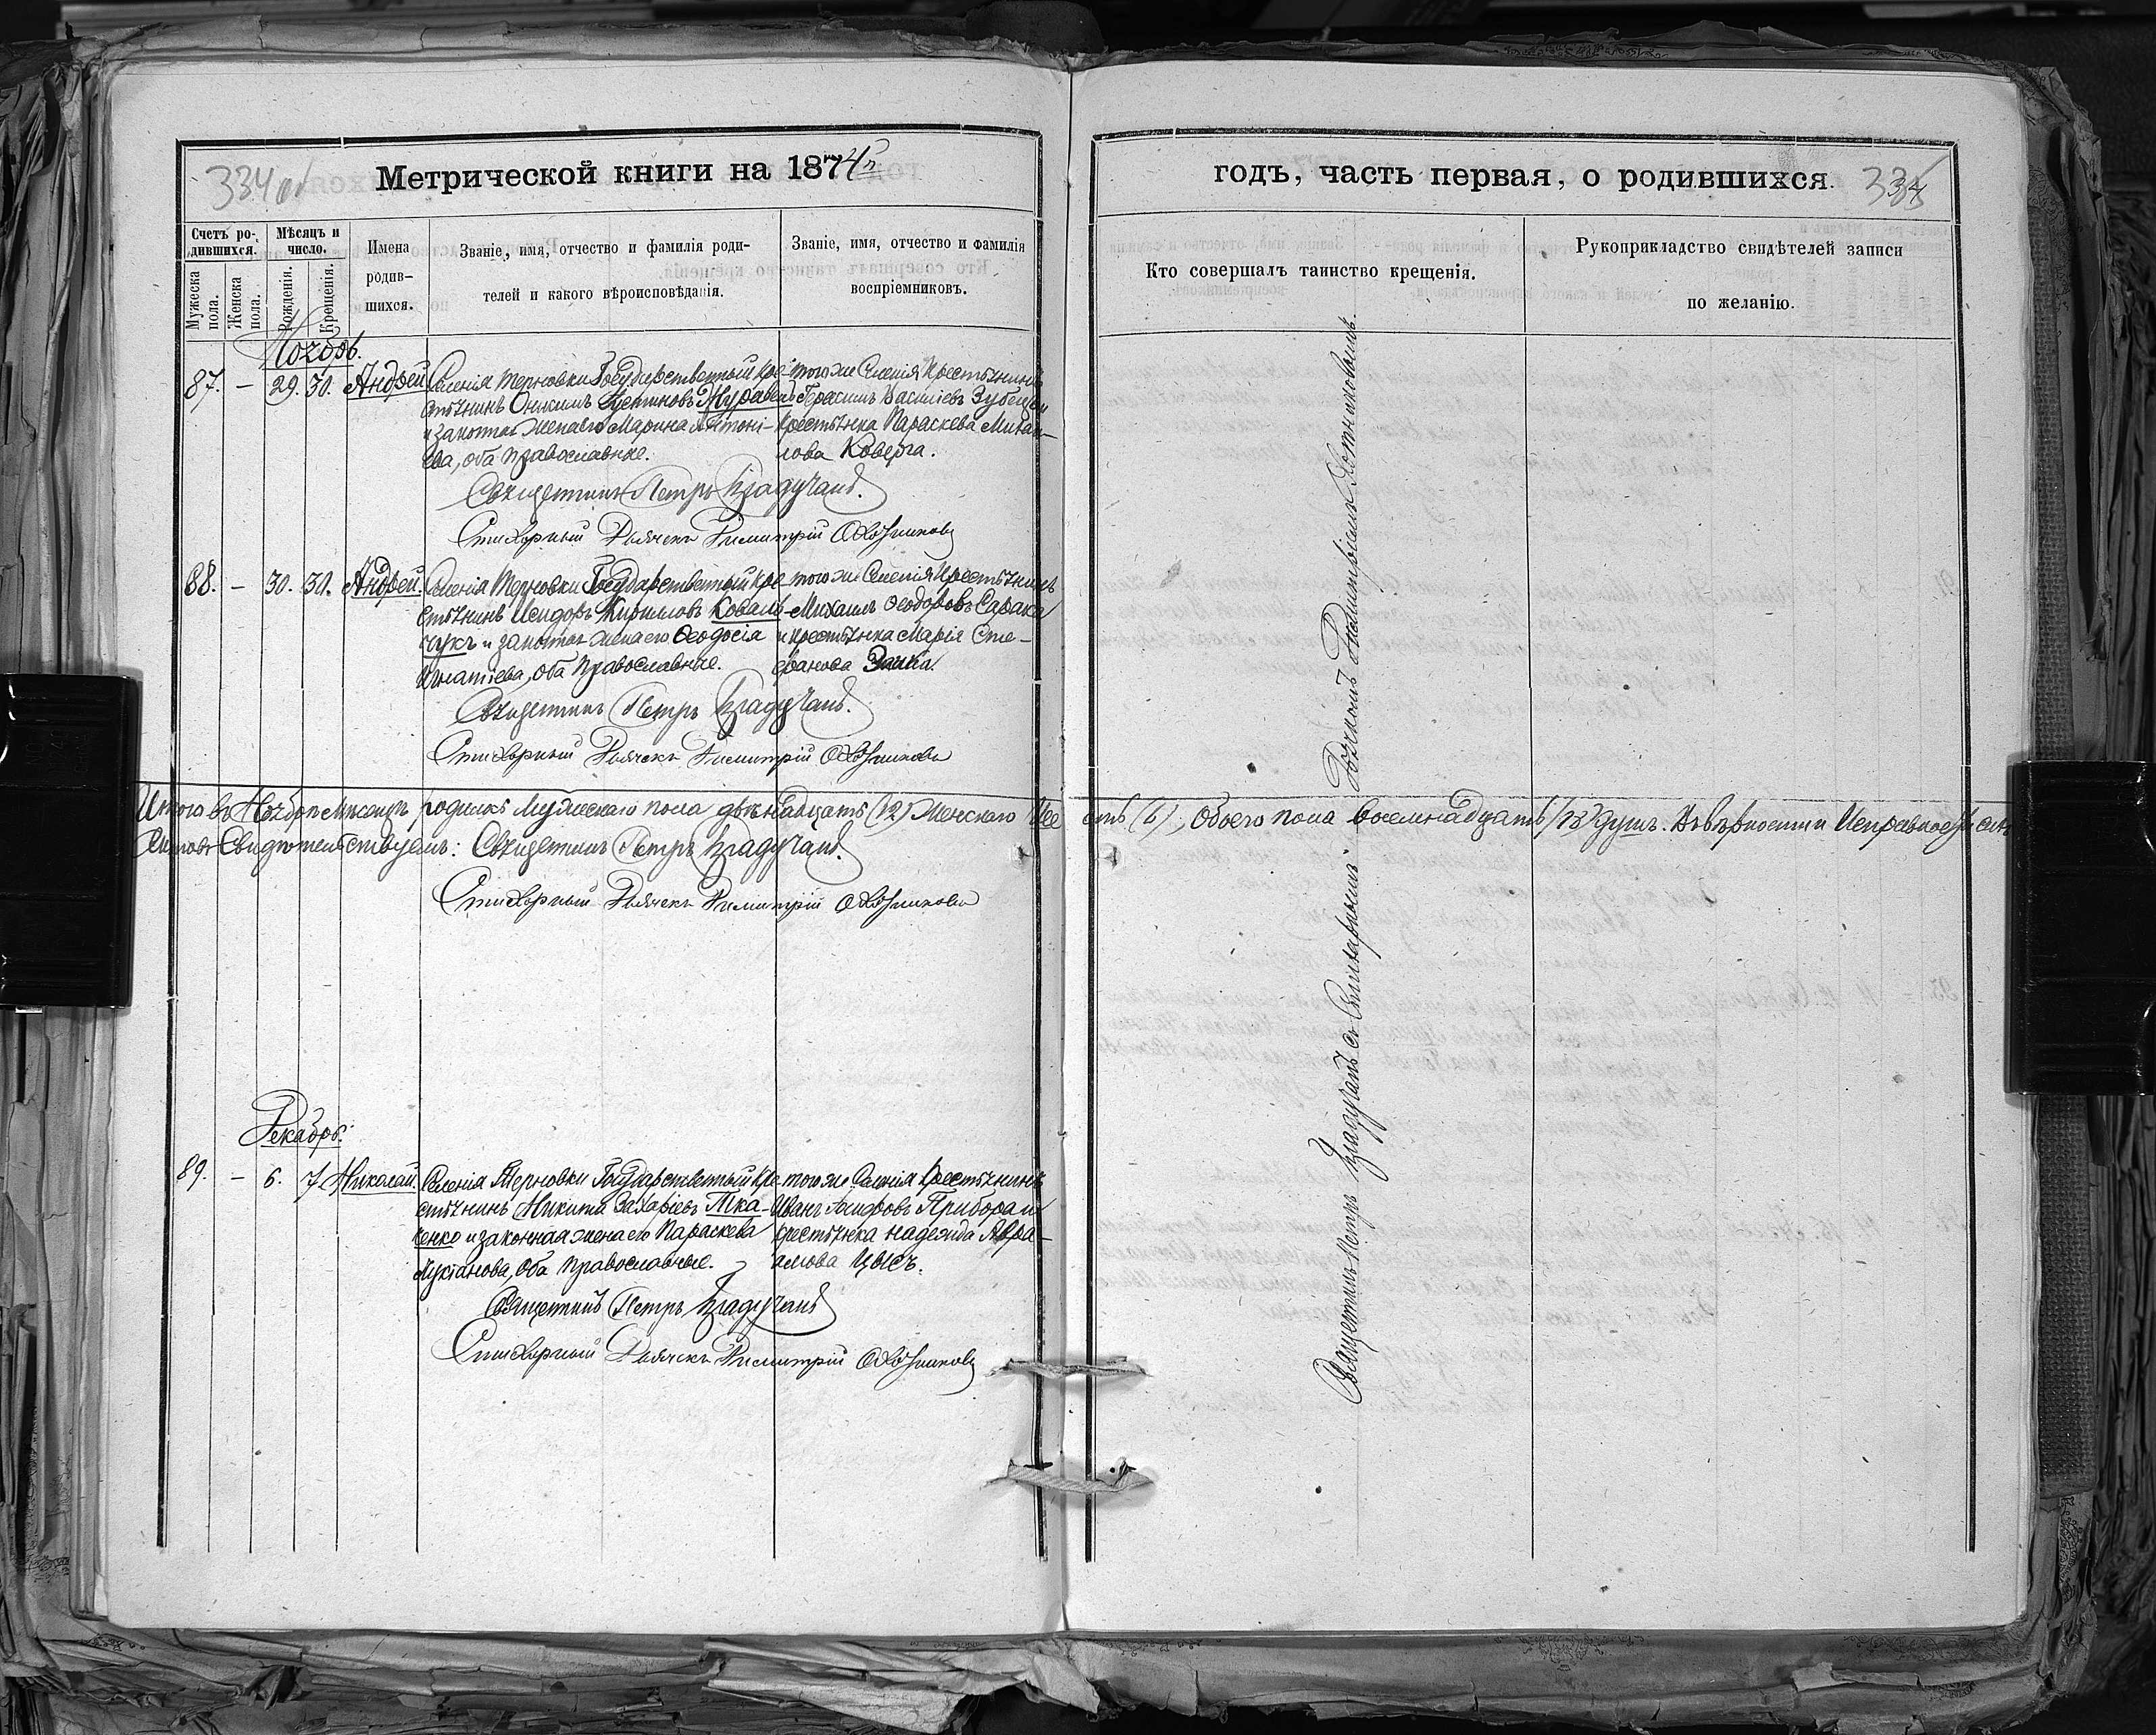 334 об
Метрической книги на 1874й
Счетъ ро-
дившихся.
Мужеска пола.
Женска пола.
Мѣсяцъ и
число.
Рожденія.
Крещенія.
Имена
родив-
шихся.
Званіе, имя, отчество и фамилія роди-
телей и какого вѣроисповѣданія.
Званіе, имя, отчество и фамилія
воспріемниковъ.
Ноябрь.
87. – 29. 30. Андрей
Селенія Терновки Государственный кре-
стьянинъ Онисимъ Журавель
и законная жена его Марина Антоні-
ева, оба православные.
того же Селенія Крестьянинъ
Герасимъ Василіевъ Зубецъ и
крестьянка Параскева Михаи-
лова Коверга.
Священникъ Петръ
Стихарный Дьячекъ Димитрій
88. – 30. 30. Андрей.
Селенія Терновки Государственный кре-
стьянинъ Исидоръ Кириловъ Коваль-
чукъ и законная жена его Ѳеодосія
Игнатіева, оба Православные.
того же Селенія Крестьянинъ
Михаилъ Ѳеодоровъ
и крестьянка Марія Сте-
фанова Заика
Священникъ Петръ
Стихарный Дьячекъ Димитрій
Итого въ Ноябрѣ Мѣсяцѣ родилось Мужескаго пола двѣнадцать (12) Женскаго Ше
Свидѣтельствуемъ: Священникъ Петръ
Стихарный Дьячекъ Димитрій
Декабрь.
89. – 6. 7. Николай.
Селенія Терновки Государственный кре-
стьянинъ Никита Захаріевъ Тка-
ченко и законная жена его Параскева
Лукіанова, оба Православные.
того же Селенія Крестьянинъ
Иванъ
крестьянка Надежда Авра-
амова Цысь.
Священникъ Петръ
Стихарный Дьячекъ Димитрій
годъ, часть первая, о родившихся.
Кто совершалъ таинство крещенія.
Рукоприкладство свидѣтелей записи
по желанію.
сть (6), Обоего пола восемнадцать (18) душъ. Въ вѣрности и Исправности сих
Священникъ Петръ съ Стихарнымъ Дьячкомъ Димитріемъ